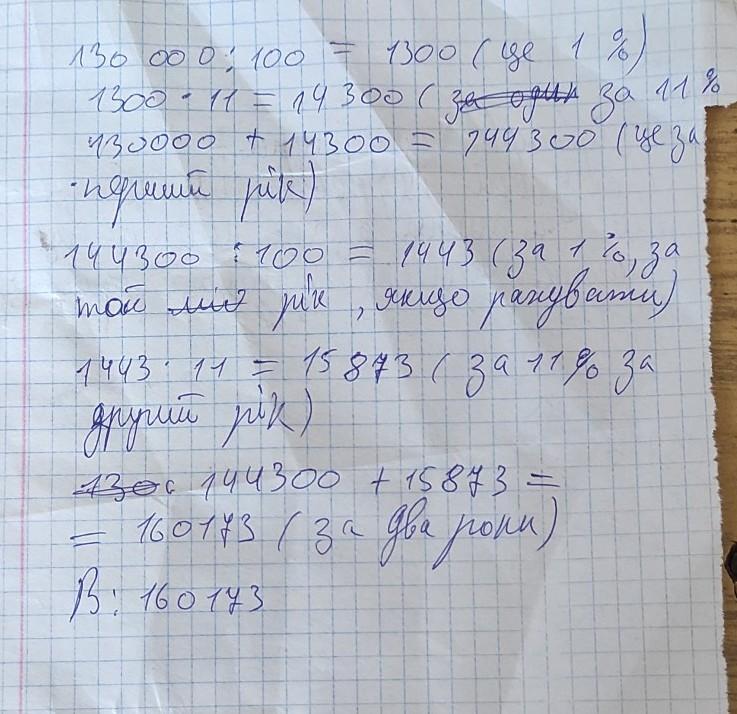 130 000 : 100 = 1300 (це 1 %)
1300 · 11 = 14300 (за один за 11%
130000 + 14300 = 144300 (це за
перший рік)
144300 : 100 = 1443 (за 1 %, за
той рік, якщо рахувати)
1443 · 11 = 15873 (за 11% за
другий рік)
130 144300 + 15873 =
= 160173 (за два роки)
В: 160173